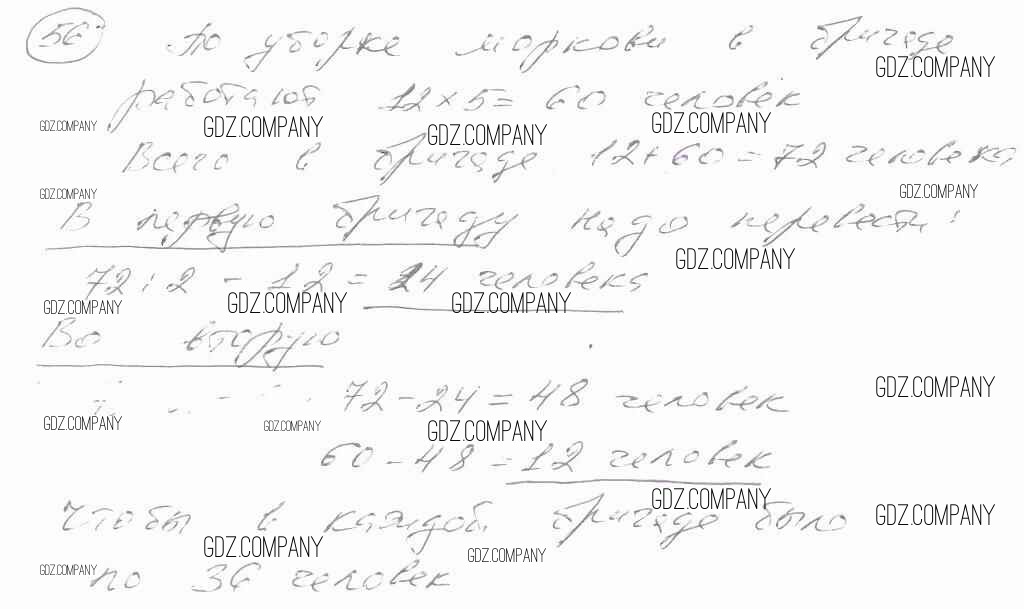 56 По уборке моркови в бригаде
GDZ.COMPANY
работают 12 x 5 = 60 человек
GDZ.COMPANY GDZ.COMPANY GDZ.COMPANY GDZ.COMPANY
Всего в бригаде 12 + 60 = 72 человека
GDZ.COMPANY GDZ.COMPANY
В первую бригаду надо перевести:
GDZ.COMPANY
72 : 2 - 12 = 24 человека
GDZ.COMPANY GDZ.COMPANY GDZ.COMPANY
Во вторую
GDZ.COMPANY
72 - 24 = 48 человек
GDZ.COMPANY GDZ.COMPANY GDZ.COMPANY
60 - 48 = 12 человек
GDZ.COMPANY
Чтобы в каждой бригаде было
GDZ.COMPANY
GDZ.COMPANY GDZ.COMPANY
GDZ.COMPANY
по 36 человек